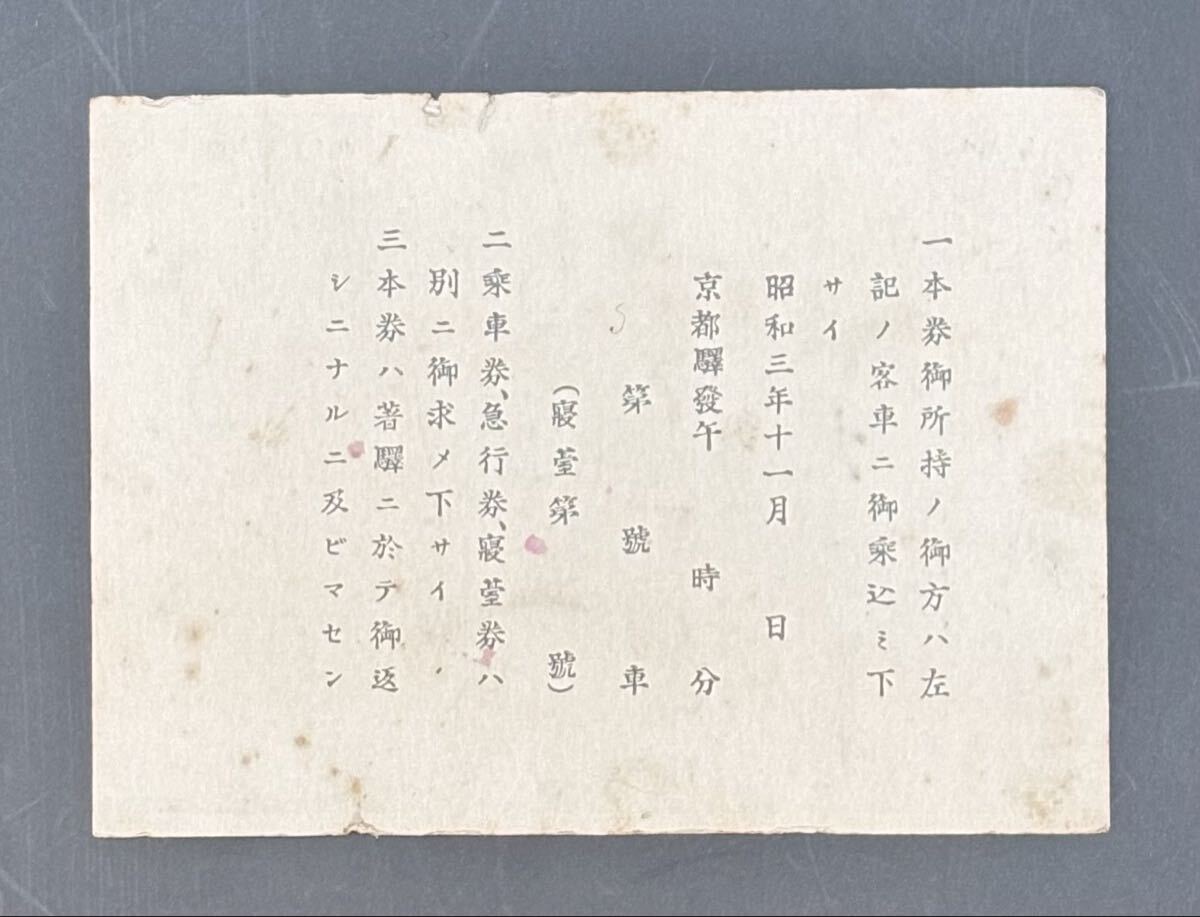 一本券御所持ノ御方ハ左
記ノ客車ニ御乘込ミ下
サイ
昭和三年十一月　日
京都驛發午　時　分
第　號　車
(寢臺第　號)
二乘車券、急行券、寢臺券ハ
別ニ御求メ下サイ、
三本券ハ著驛ニ於テ御返
シニナルニ及ビマセン